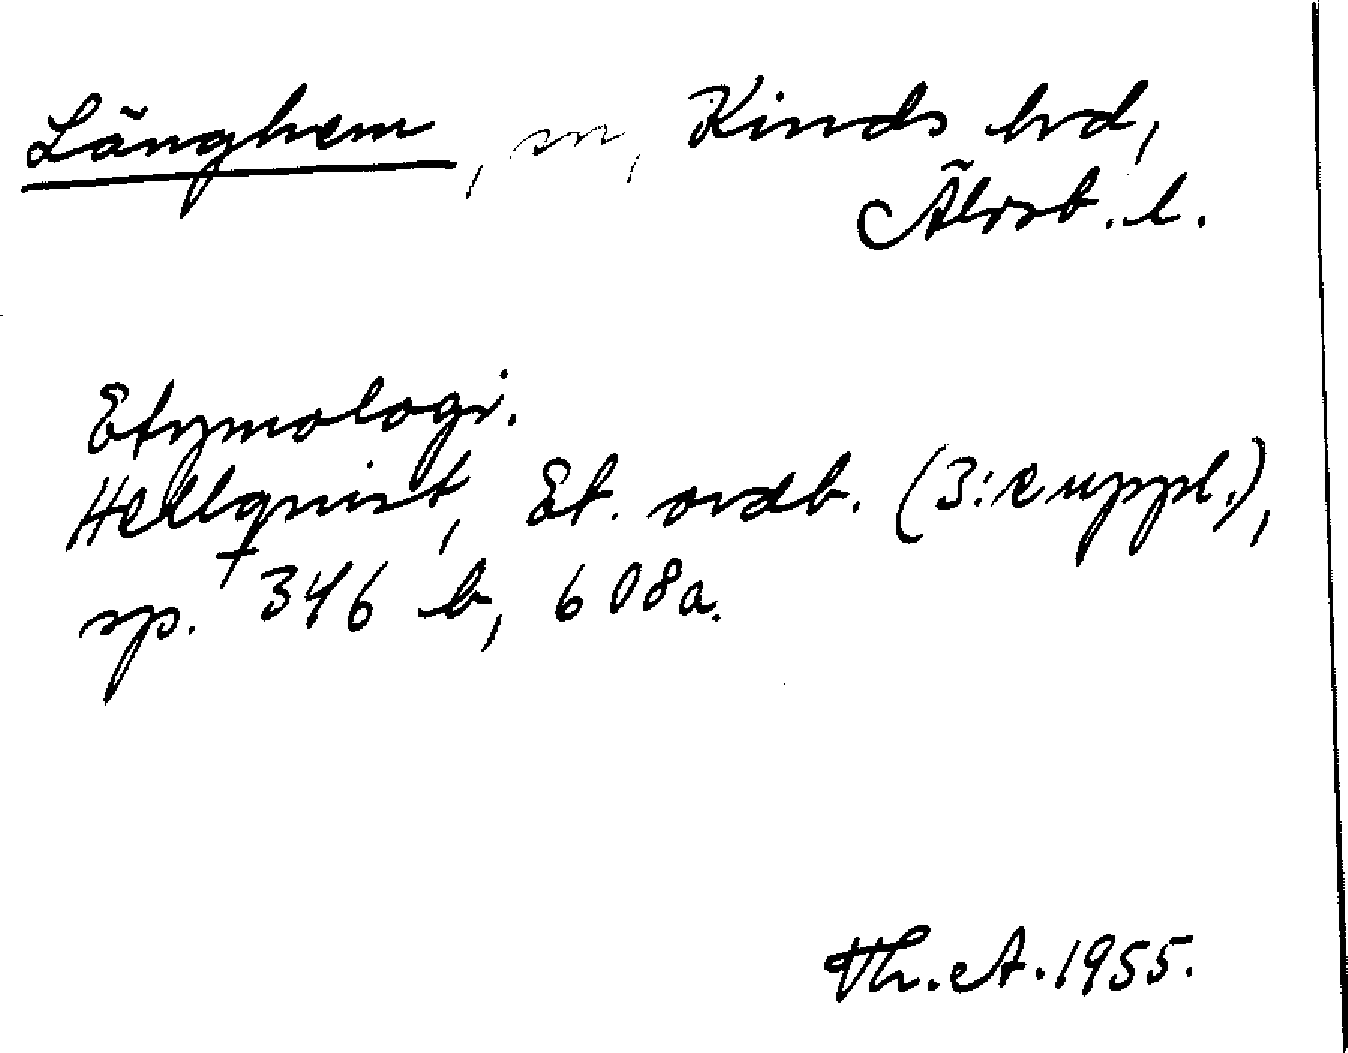 Länghem, sn, Kinds hd,
Älvsb. l.
Etymologi.
Hellqvist, Et. ordb. (3: e uppl.),
sp. 346 b, 608a.
Th. A. 1955.